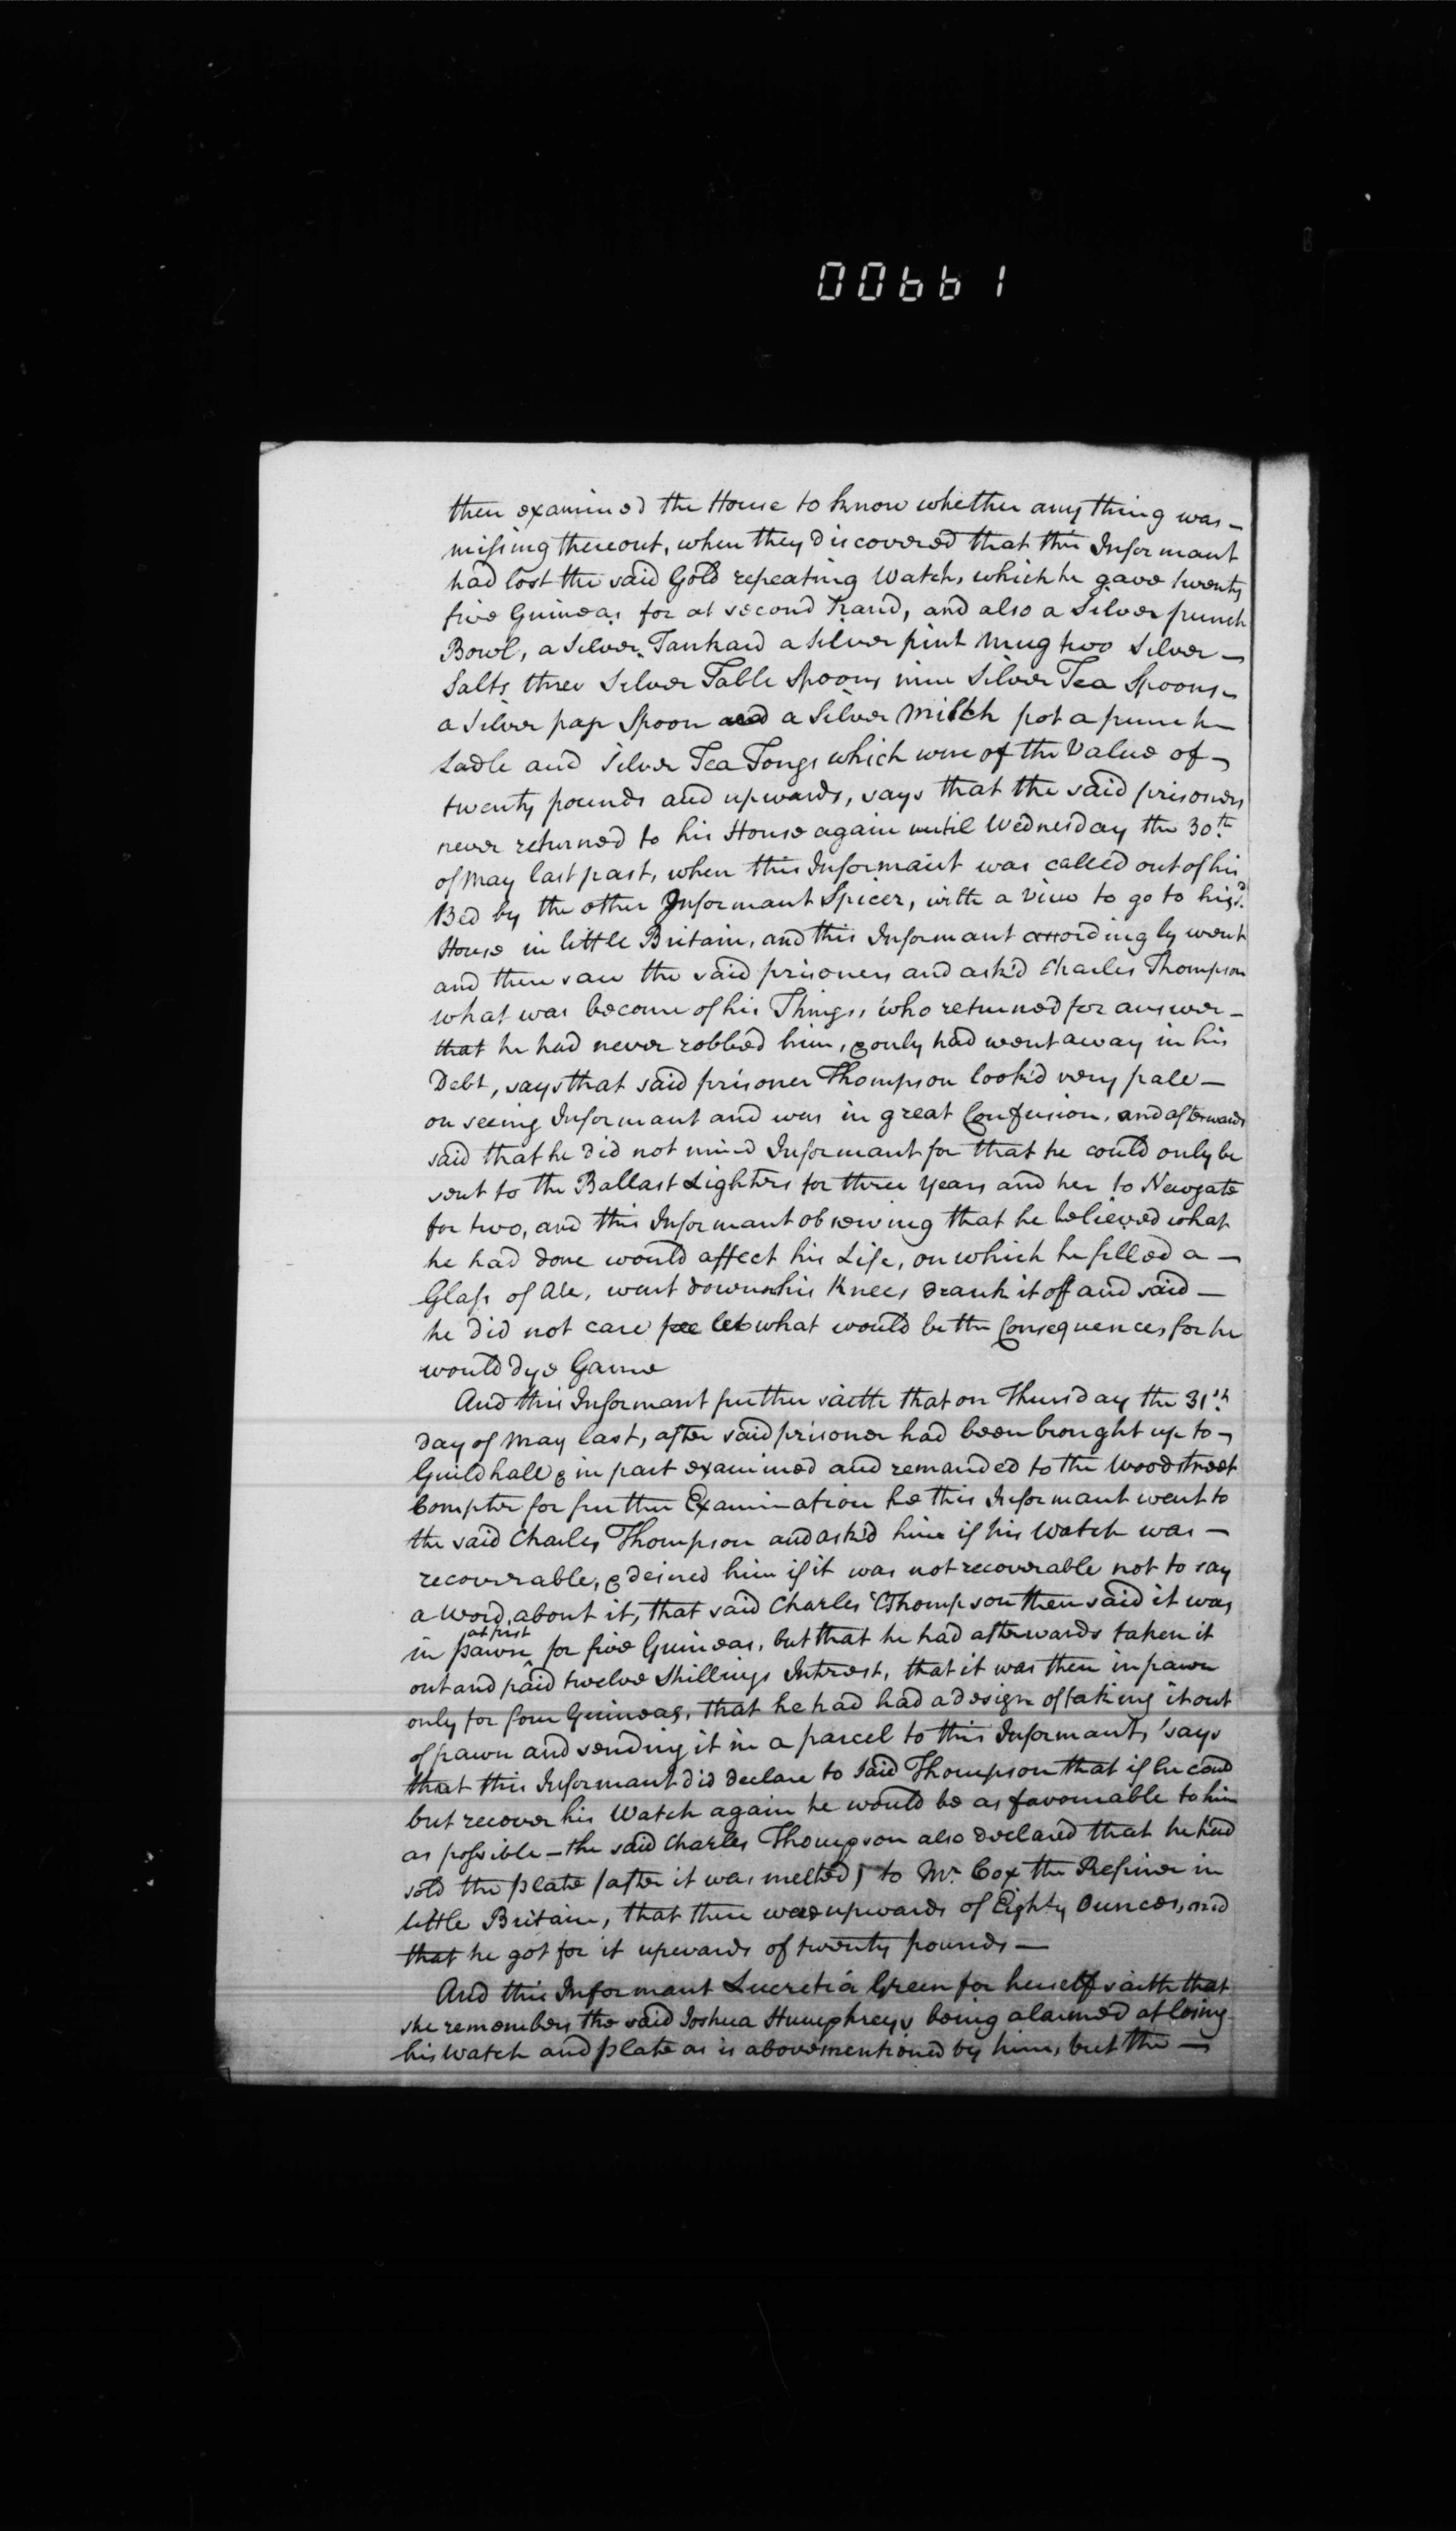 00661
then examined the House to know whether any thing was -
missing thereout, when they discovered that this Informant
had lost the said Gold repeating Watch, which he gave twenty
five Guineas for at second Hand, and also a Silver punch
Bowl, a Silver Tankard a silver pint Mug two Silver -
Salts three Silver Table Spoons nine Silver Tea Spoons -
a Silver pap Spoon and a Silver Milk pot a punch
Ladle and Silver Tea Tongs which were of the Value of -
twenty pounds and upwards, says that the said prisoners
never returned to his House again until Wednesday the 30th
of May last past, when this Informant was called out of his
Bed by the other Informant Spicer, with a View to go to his sd.
House in little Britain, and this Informant accordingly went
and there saw the said prisoners and ask'd Charles Thompson
what was become of his Things, who returned for answer -
that he had never robbed him, & only had went away in his
Debt, says that said prisoner Thompson look'd very pale -
on seeing Informant and was in great Confusion, and afterwards
said that he did not mind Informant for that he could only be
sent to the Ballast Lighters for three Years and her to Newgate
for two, and this Informant observing that he believed what
he had done would affect his Life, on which he filled a -
Glass of Ale, went down his Knees drank it off and said -
he did not care what would be the Consequences for he
would dye Game
And this Informant further saith that on Thursday the 31th
day of May last, after said prisoner had been brought up to -
Guildhall & in part examined and remanded to the Woodstreet
Compter for further Examination he this Informant went to
the said Charles Thompson and ask'd him if his Watch was -
recoverable, & desired him if it was not recoverable not to say
a Word about it, that said Charles Thompson then said it was
at first
in pawn for five Guineas, but that he had afterwards taken it
out and paid twelve Shillings Interest, that it was then in pawn
only for four Guineas, that he had had a design of taking it out
of pawn and sending it in a parcel to this Informant, says
that this Informant did declare to said Thompson that if he coud
but recover his Watch again he would be as favourable to him
as possible - the said Charles Thompson also declared that he had
sold the plate (after it was melted) to Mr. Cox the Refiner in
little Britain, that there was upwards of Eighty Ounces, and
that he got for it upwards of twenty pounds -
And this Informant Lucretia Green for herself saith that
she remembers the said Joshua Humphreys being alarmed at losing
his Watch and plate as is abovementioned by him, but the -